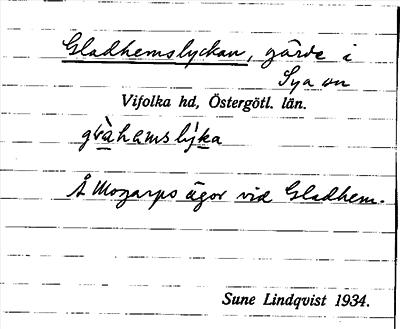 Gladhemslyckan, gärde i
Sya sn
Vifolka hd, Östergötl. län.
Å Mogarps ägor vid Gladhem.
Sune Lindqvist 1934.